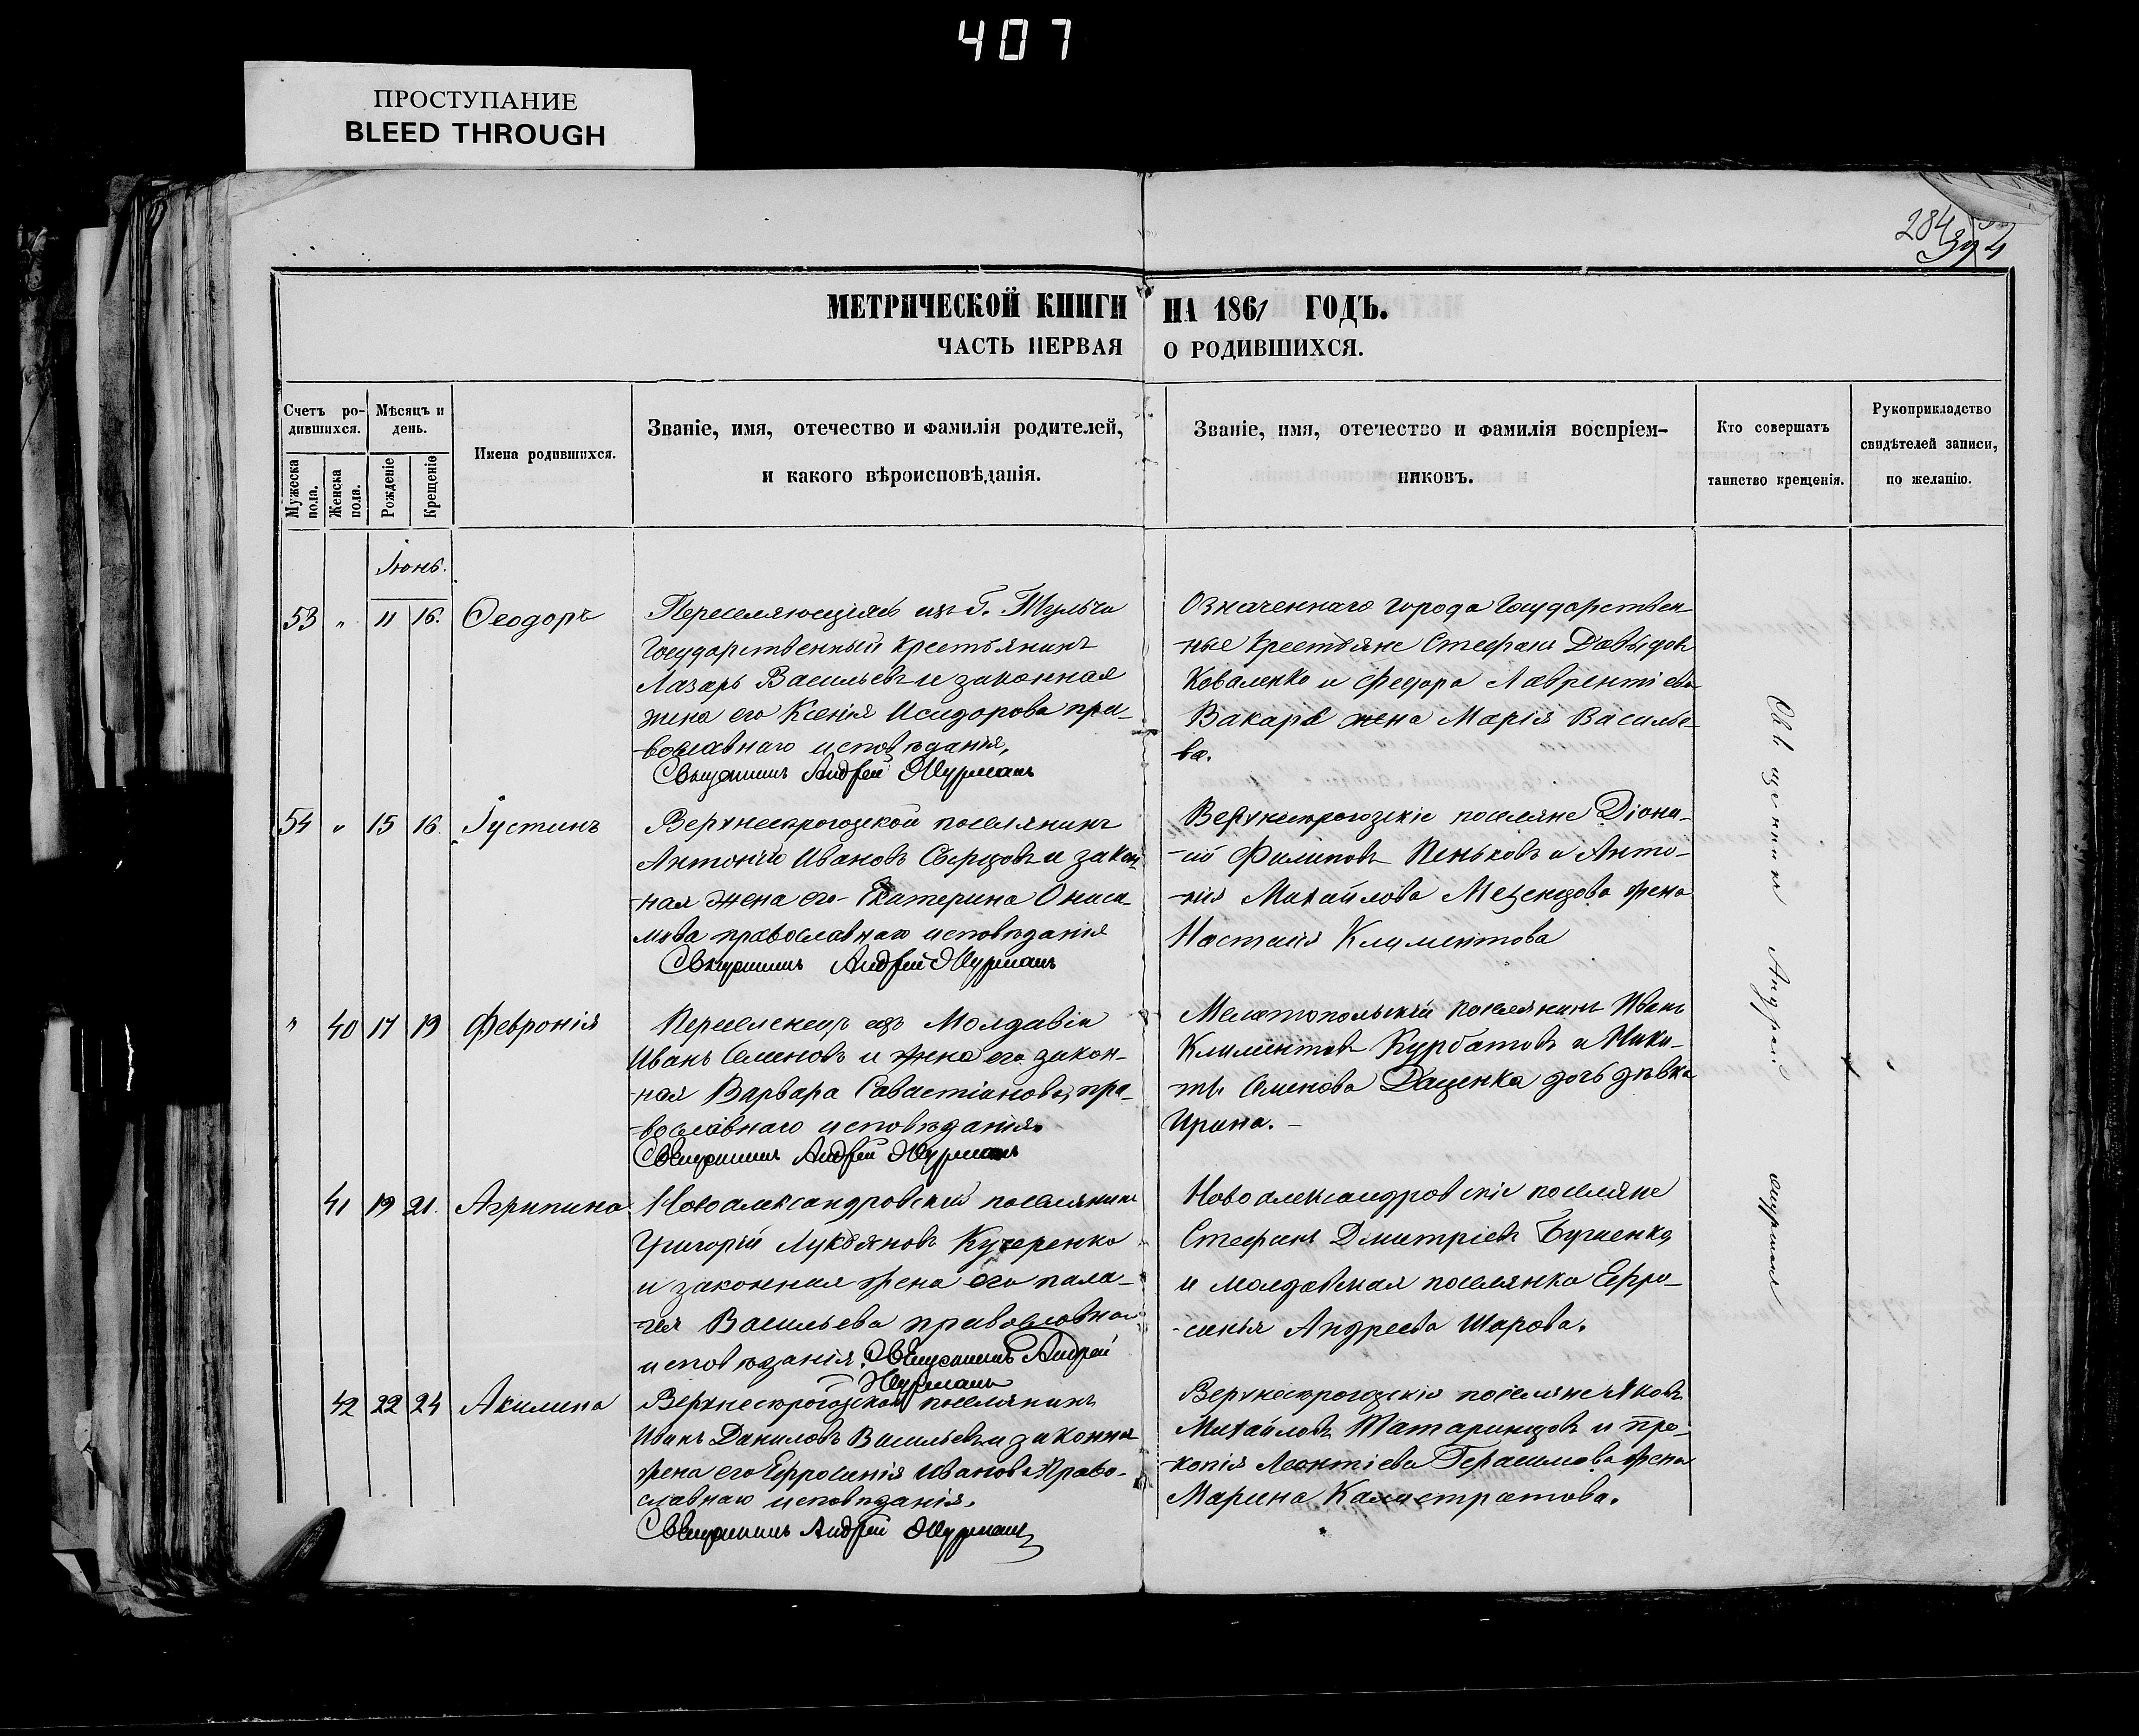 407
ПРОСТУПАНИЕ
BLEED THROUGH
284
МЕТРИЧЕСКОЙ КНИГИ НА 1861 ГОДЪ.
ЧАСТЬ ПЕРВАЯ О РОДИВШИХСЯ.
Счетъ ро-
дившихся.
Мужеска
пола.
Женска
пола.
Мѣсяцъ и
день.
Рожденіе
Крещеніе
Имена родившихся.
Званіе, имя, отечество и фамилія родителей,
и какого вѣроисповѣданія.
Званіе, имя, отечество и фамилія воспріем-
никовъ.
Кто совершатъ
таинство крещенія.
Рукоприкладство
свидѣтелей записи,
по желанію.
Іюнь.
53 " 11 16. Ѳеодоръ
Переселяющіяся изъ г. Тульчи
Государственный крестьянинъ
Лазарь Васильевъ и законная
жена его Ксенія Исидорова пра-
-вославнаго исповѣданія.
Священникъ Андрей
Означеннаго города Государствен-
ные крестьяне Стефанъ Давыдовъ
Коваленко и Федора Лаврентіева
Вакаря жена Марія Василье-
ва.
54 " 15 16. Іустинъ
Верхнесерогозской поселянинъ
Антоній Ивановъ Сырцовъ и закон-
-ная жена его Екатерина Ониси-
мова православнаго исповѣданія
Священникъ Андрей
Верхнесерогозскіе поселяне Діони-
-ій Филиповъ Пеньковъ и Анто-
-нія Михайлова Мезенцова жена
Настасія Климентова
" 40 17 19 Февронія
Переселенецъ изъ Молдавіи
Иванъ Семеновъ и жена его закон-
-ная Варвара Савастіанова, пра-
-вославнаго исповѣданія.
Священникъ Андрей
Мелитопольскій поселянинъ Иванъ
Климентовъ Курбатовъ и Мики-
ты Семенова Даценка дочь дѣвка
Ирина. -
41 19 21. Агрипина
Новоалександровскій поселянинъ
Григорій Лукьяновъ Кучеренко
и законная жена его Пала-
-гея Васильева православнаго
исповѣданія. Священникъ Андрей
Новоалександровскіе поселяне
Стефанъ Дмитріевъ
и молдавская поселянка Ефро-
-синья Андреева Шарова.
42 22 24 Акилина
Верхнесерогозской поселянинъ
Иванъ Даниловъ Васильевъ и законна
жена его Ефросинія Иванова Право-
славнаго исповѣданія.
Священникъ Андрей
Верхнесерогозскія поселяне Яковъ
Михайловъ Татаринцовъ и Про-
копія Леонтіева Герасимова жена
Марина Калистратова.
Священникъ Андрей